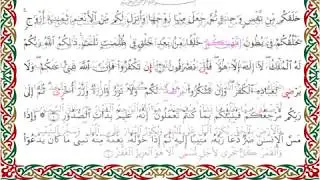 خَلَقَكُم مِّن نَّفْسٍ وَٰحِدَةٍ ثُمَّ جَعَلَ مِنْهَا زَوْجَهَا وَأَنزَلَ لَكُم مِّنَ ٱلْأَنْعَٰمِ ثَمَٰنِيَةَ أَزْوَٰجٍ
يَخْلُقُكُمْ فِى بُطُونِ أُمَّهَٰتِكُمْ خَلْقًا مِّنۢ بَعْدِ خَلْقٍ فِى ظُلُمَٰتٍ ثَلَٰثٍ ذَٰلِكُمُ ٱللَّهُ رَبُّكُمْ
لَهُ ٱلْمُلْكُ لَآ إِلَٰهَ إِلَّا هُوَ فَأَنَّىٰ تُصْرَفُونَ ۝ إِن تَكْفُرُوا۟ فَإِنَّ ٱللَّهَ غَنِىٌّ عَنكُمْ وَلَا
يَرْضَىٰ لِعِبَادِهِ ٱلْكُفْرَ وَإِن تَشْكُرُوا۟ يَرْضَهُ لَكُمْ وَلَا تَزِرُ وَازِرَةٌ وِزْرَ أُخْرَىٰ ثُمَّ إِلَىٰ
رَبِّكُم مَّرْجِعُكُمْ فَيُنَبِّئُكُم بِمَا كُنتُمْ تَعْمَلُونَ إِنَّهُۥ عَلِيمٌۢ بِذَاتِ ٱلصُّدُورِ ۝ وَإِذَا
مَسَّ ٱلْإِنسَٰنَ ضُرٌّ دَعَا رَبَّهُۥ مُنِيبًا إِلَيْهِ ثُمَّ إِذَا خَوَّلَهُۥ نِعْمَةً مِّنْهُ نَسِىَ مَا كَانَ يَدْعُوٓا۟
وَٱلْقَمَرَ كُلٌّ يَجْرِى لِأَجَلٍ مُّسَمًّى أَلَا هُوَ ٱلْعَزِيزُ ٱلْغَفَّٰرُ